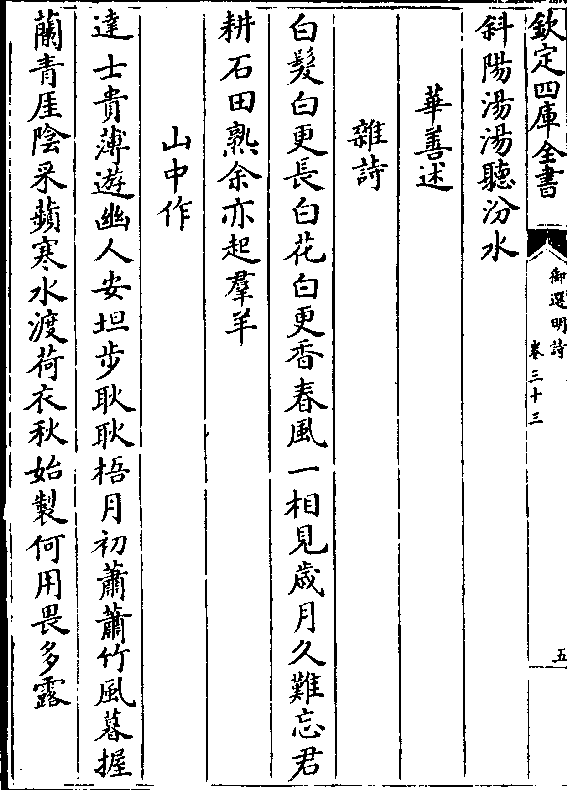 欽定四庫全書
御選明詩
卷三十三
五
斜陽湯湯聽汾水
華善述
雜詩
白髮白更長白花白更香春風一相見歳月久難忘君
耕石田熟余亦起羣羊
山中作
達士貴薄遊幽人安坦步耿耿梧月初蕭蕭竹風暮握
蘭青厓陰采蘋寒水渡荷衣秋始製何用畏多露